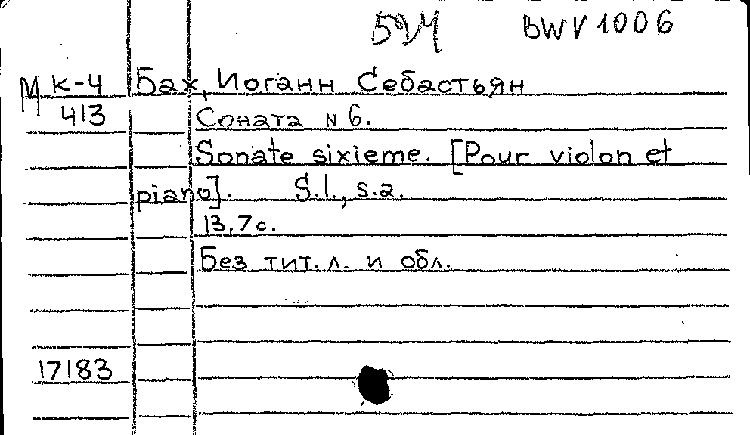 BWV 1006
М К-4 Бах, Иоганн Себастьян
413 Соната N 6.
Sonate sixieme. [Pour violon et
piano]. S.l., s.a.
13,7с.
Без тит. л. и обл.
17183